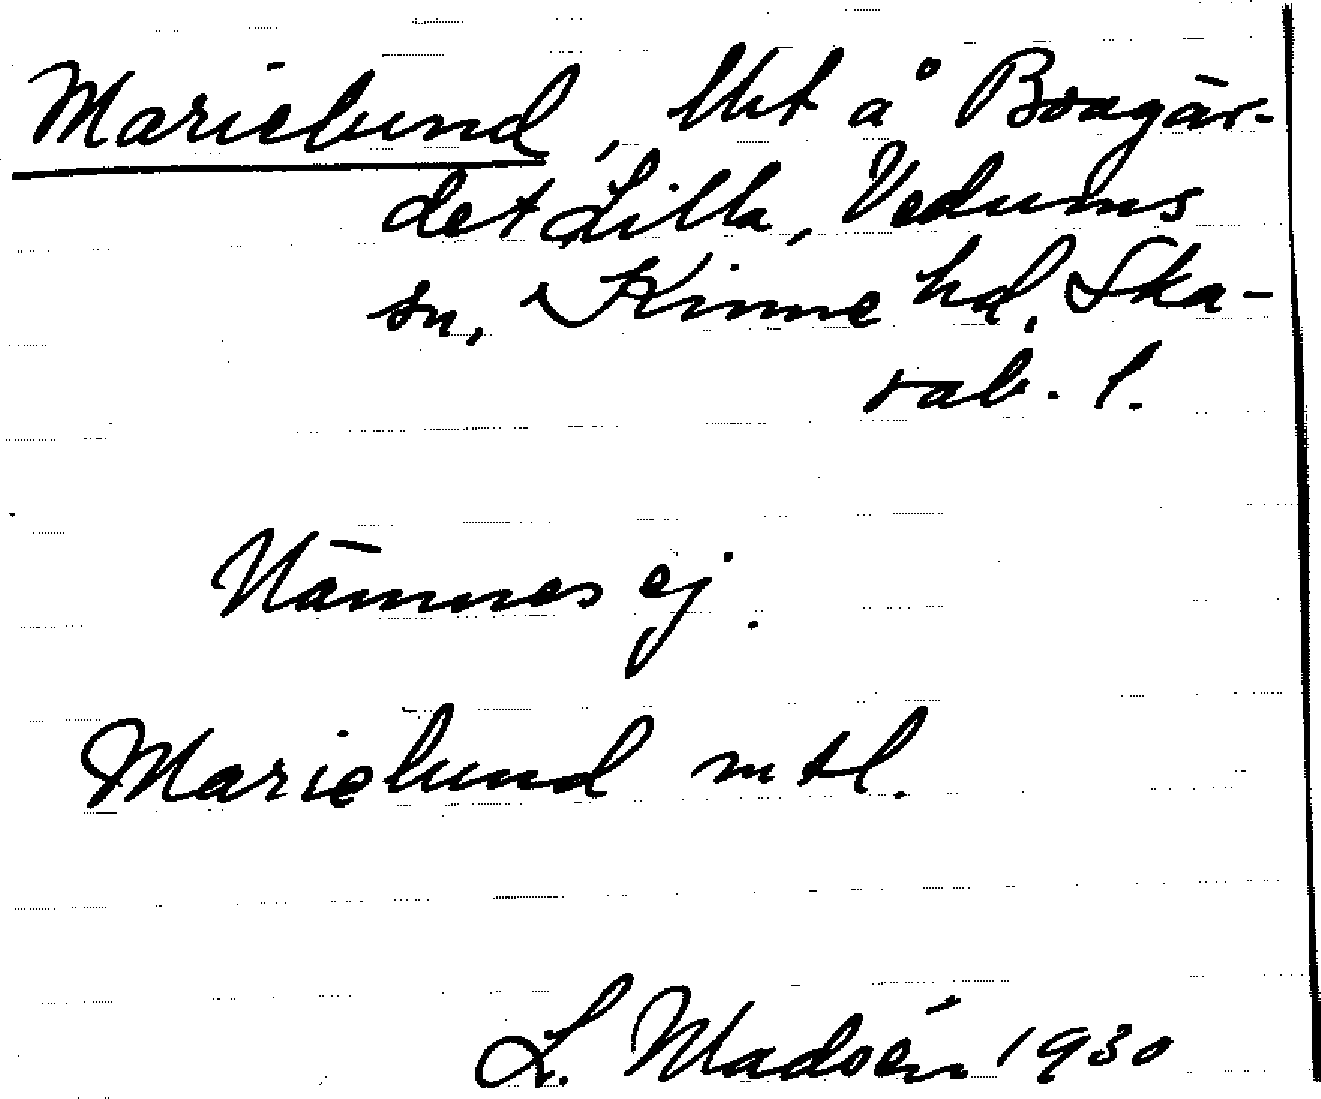 Marielund, lht å Boagär-
det Lilla, Vedums
sn, Kinne hd, Ska-
rab. l.
Nämnes ej.
Marielund mtl.
L. Madsén 1930